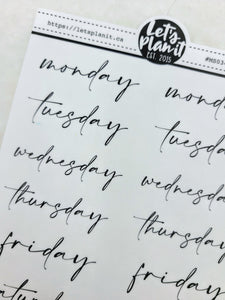 https://letsplanit.ca
Let's
Planit
EST. 2015
monday monday
tuesday tuesday
wednesday wednesday
thursday thursday
friday friday